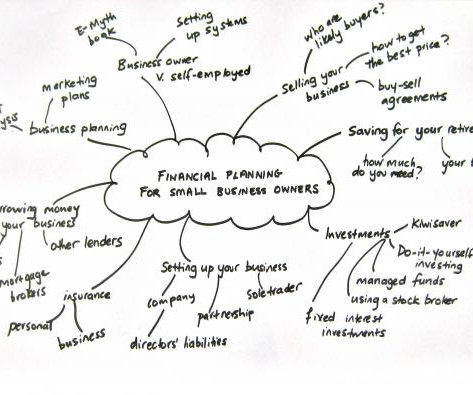 E-Myth
book
Setting
up systems
Business owner
v. self-employed
who are
likely buyers?
how to get
the best price?
Selling your
business
buy-sell
agreements
marketing
plans
business planning
Saving for your
how much
do you need?
your
FINANCIAL PLANNING
FOR SMALL BUSINESS OWNERS
money
your business
other lenders
mortgage
brokers
insurance
personal
business
Setting up your business
company
partnership
Sole trader
directors' liabilities
Investments
Kiwisaver
Do-it-yourself
investing
managed funds
using a stock broker
fixed interest
investments